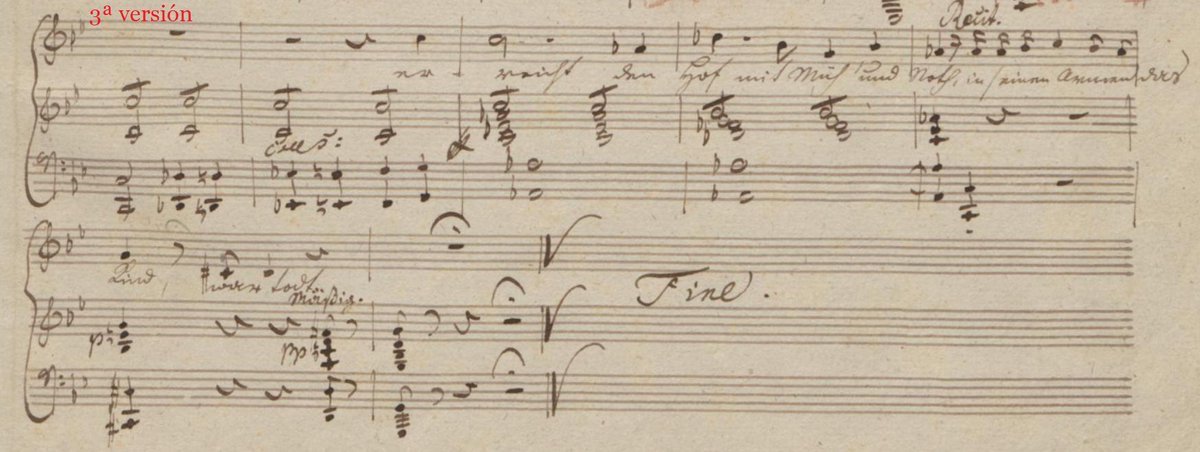 3ª versión
Recit.
er - reicht den Hof mit Müh' und Noth, in seinen Armen das
coll 8:
Kind, war todt.
Mäßig.
p pp
Fine.